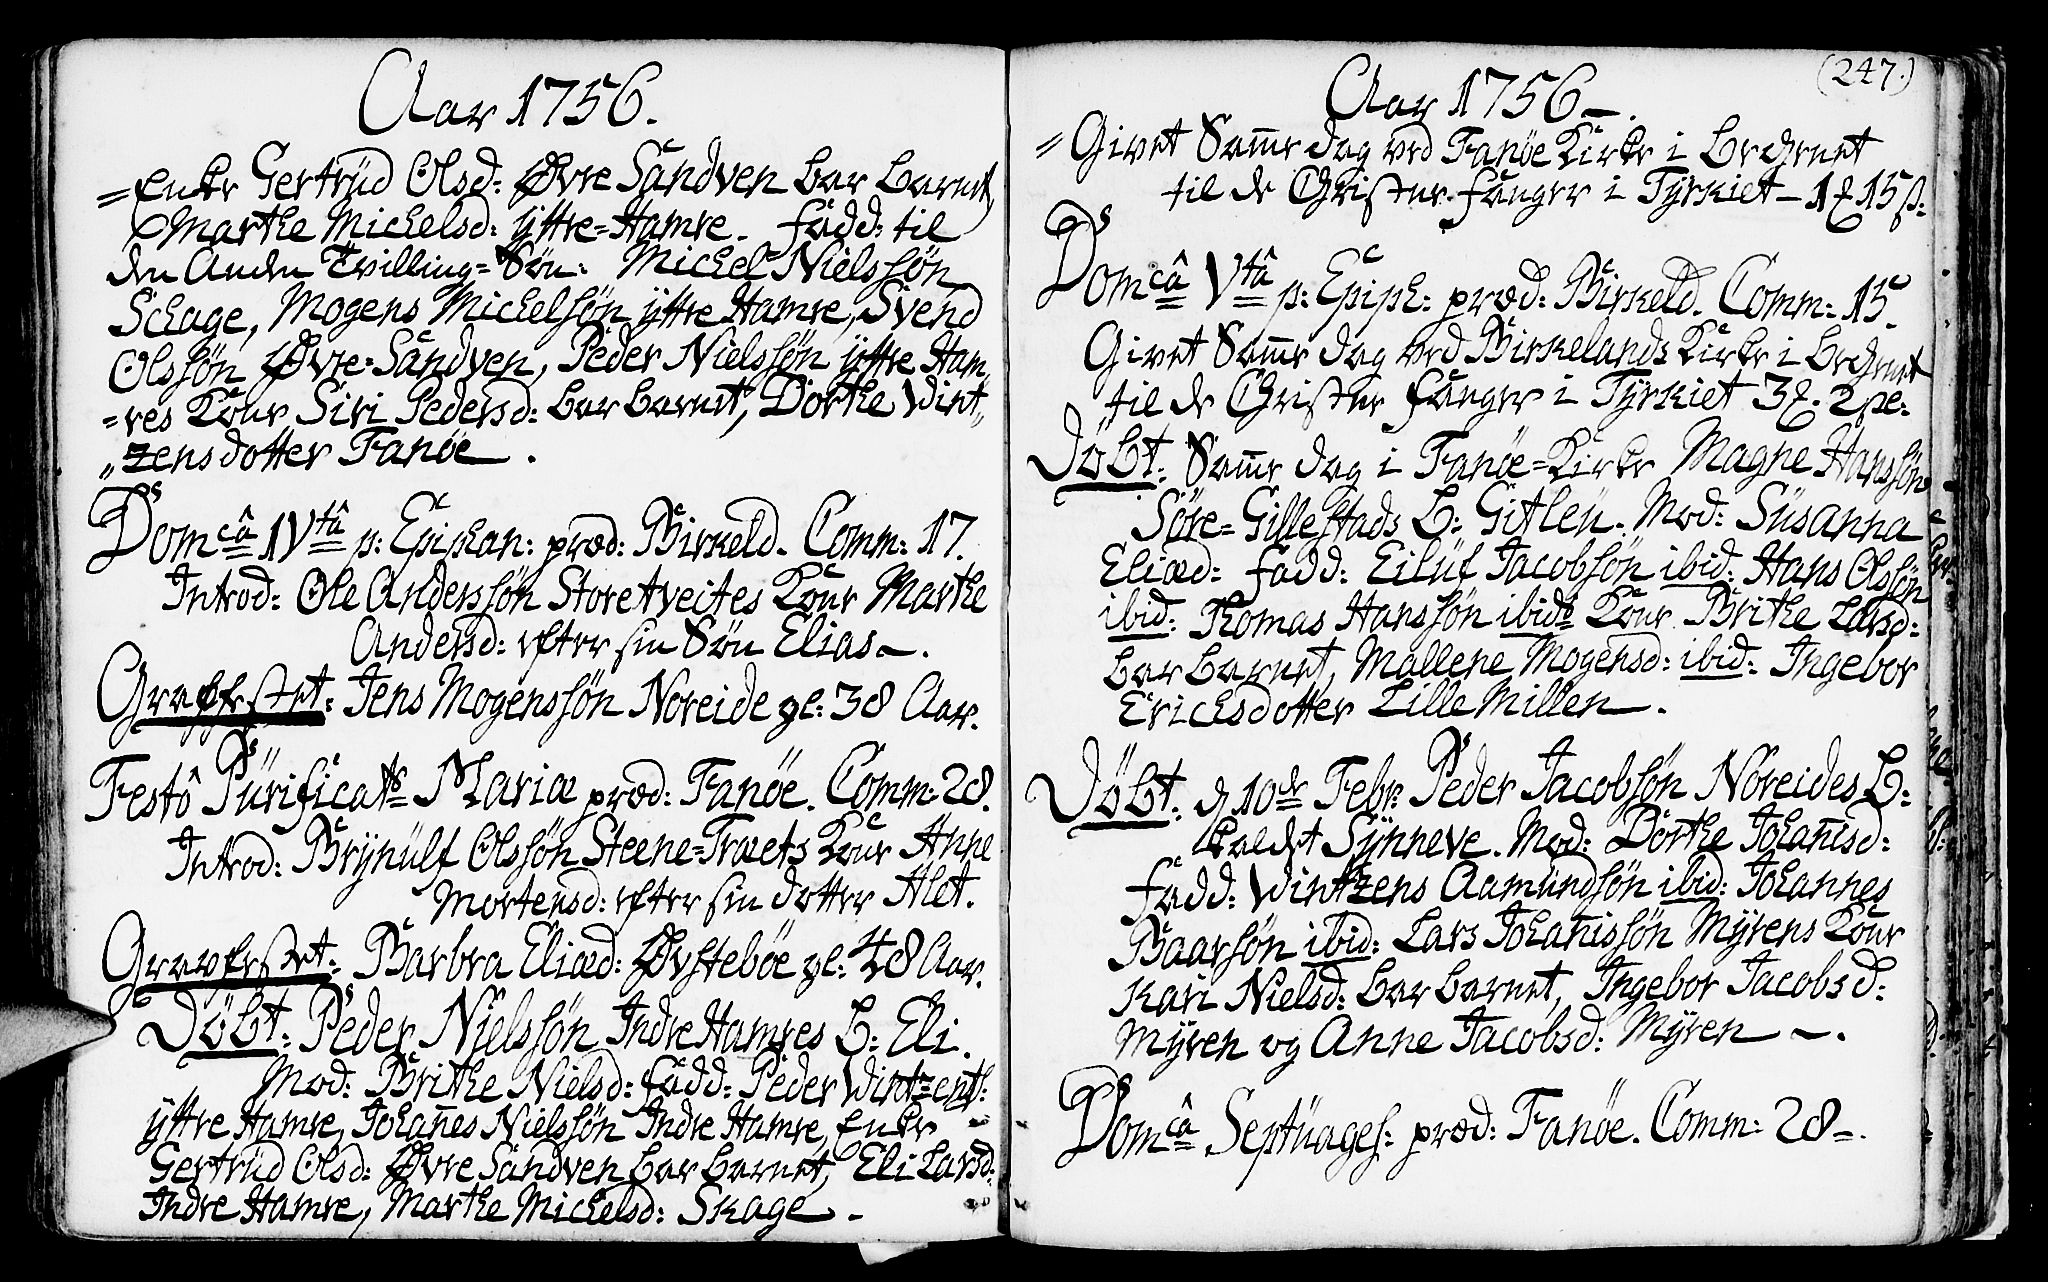 Aar 1756.
= Enke Gertrud Olsd: Øvre Sandven bar barnet,
Marthe Michelsd: yttre=Hamre. Fadd: til
den Anden Tvilling=Søn: Michel Nielssøn
Schage, Mogens Michelsøn yttre Hamre, Svend
Olssøn Øvre=Sandven, Peder Nielssøn yttre Ham„
=res Kone Siri Pedersd: bar barnet, Dorthe Vint„
„zensdotter Fanøe.
Domcâ IVtâ p: Epiphan: præd: Birkeld. Comm: 17.
Introd: Ole Anderssøn Storetveites Kone Marthe
Andersd: efter sin Søn Elias —.
Græffæstet: Jens Mogenssøn Noreide gl: 38 Aar.
Festô Purificats Mariæ præd: Fanøe. Comm: 28.
Introd: Brynulf Olssøn Steene=Træets Kone Anne
Mortensd: efter sin dotter Alet.
Gravfæstet: Barbra Eliæd: Øvstebøe gl: 48 Aar.
Döbt: Peder Nielssøn Indre Hamres B: Eli.
Mod: Brithe Nielsd: fadd: Peder Vintzens:
yttre Hamre, Johañes Nielssøn Indre Hamre, Enke
Gertrud Olsd: Øvre Sandven bar barnet, Eli Larsd:
Indre Hamre, Marthe Michelsd: Skage —
(247.)
Aar 1756 —.
= Givet Sam̃e dag ved Fanøe Kirke i bechenet
til de Christne fanger i Tyrkiet — 1 15 ß:
Domcâ Vtâ p: Epiph: præd: Birkeld. Comm: 15.
Givet Sam̃e dag ved Birkelands Kirke i bechenet
til de Christne fanger i Tyrkiet 3 . 2 ße:
Döbt: Sam̃e dag i Fanøe=Kirke Magne Hanssøn
Søre=Gillestads B: Gitleu. Mod: Susanna
Eliæd: fadd: Eiluf Jacobsøn ibid: Hans Olssøn
ibid: Thomas Hanssøn ibids Kone Brithe Larsd:
bar barnet, Mallene Mogensd: ibid: Ingebor
Ericksdotter Lille Millen —.
Döbt: d 10de Febr: Peder Jacobsøn Noreides B:
kaldet Synneve. Mod: Dorthe Johañisd:
fadd: Vintzens Aamundsøn ibid: Johannes
Baarsøn ibid: Lars Johañissøn Myrens Kone
Kari Nielsd: bar barnet, Ingebor Jacobsd:
Myren og Anne Jacobsd: Myren —.
Domcâ Septuages: præd: Fanøe. Comm: 28 —.